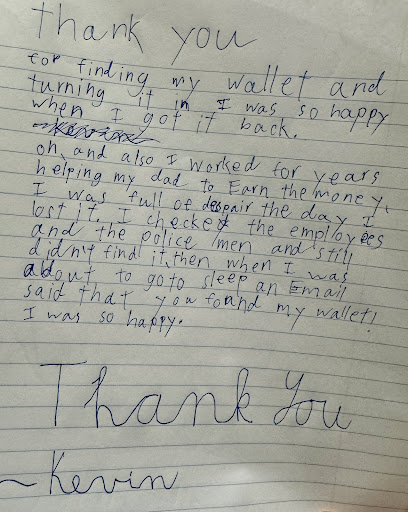 thank you
for finding my wallet and
turning it in I was so happy
when I got it back.
oh, and also I worked for years
helping my dad to Earn the money.
I was full of despair the day I
lost it. I checked the employees
and the police men and still
didn't find it, then when I was
about to go to sleep an Email
said that you found my wallet!
I was so happy.
Thank You
~Kevin